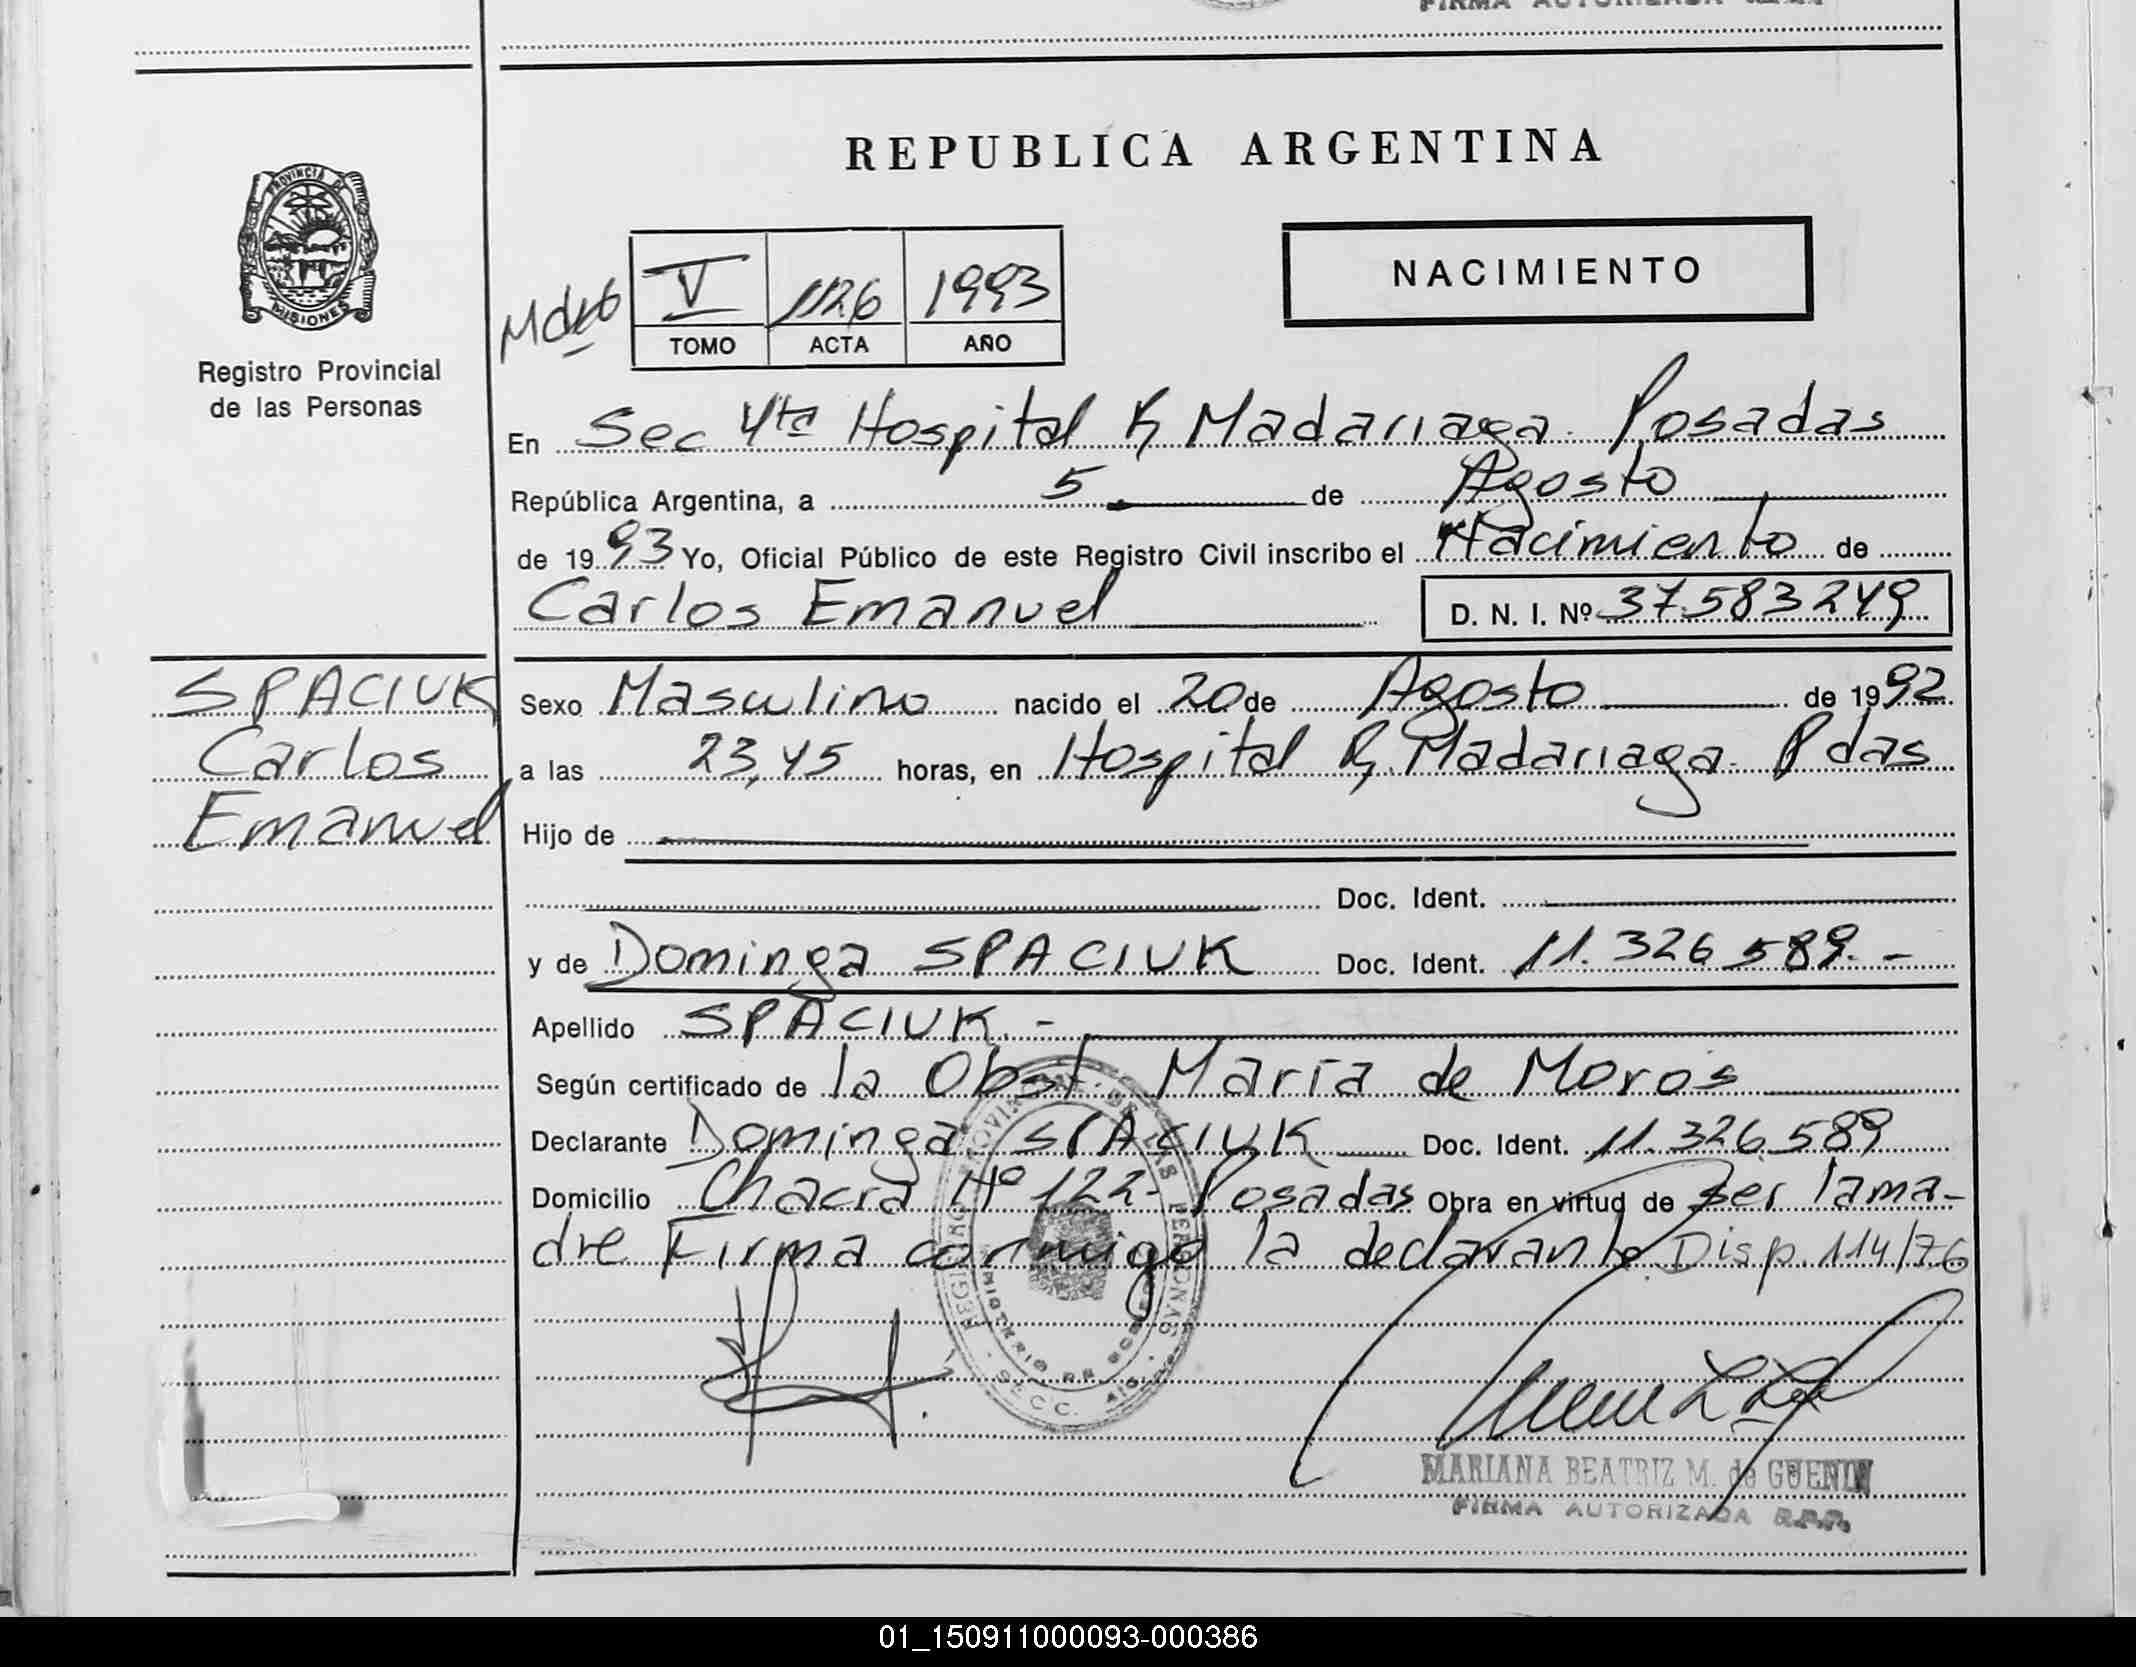 FIRMA AUTORIZADA R.P.P.
PROVINCIA DE
MISIONES
Registro Provincial
de las Personas
REPUBLICA ARGENTINA
NACIMIENTO
V 1126 1993
TOMO ACTA AÑO
En Sec 4ta Hospital R, Madariaga. Posadas
República Argentina, a 5 de Agosto
de 1993 Yo, Oficial Público de este Registro Civil inscribo el Nacimiento de
Carlos Emanuel D. N. I. Nº 37.583249
SPACIUK
Carlos
Emanuel
Sexo Masculino nacido el 20 de Agosto de 1992
a las 23,45 horas, en Hospital R, Madariaga. Pdas
Hijo de
Doc. Ident.
y de Dominga SPACIUK Doc. Ident. 11.326.589.-
Apellido SPACIUK.-
Según certificado de la Obst. María de Moros
Declarante Dominga SPACIUK Doc. Ident. 11.326.589
Domicilio Chacra Nº 122- Posadas Obra en virtud de ser la ma-
dre Firma conmigo la declarante. Disp. 114/76
REGISTRO PROVINCIAL DE LAS PERSONAS
MINISTERIO DE GOBIERNO
SECC. 4ta.
MARIANA BEATRIZ M. de GUENIN
FIRMA AUTORIZADA R.P.P.
01_150911000093-000386